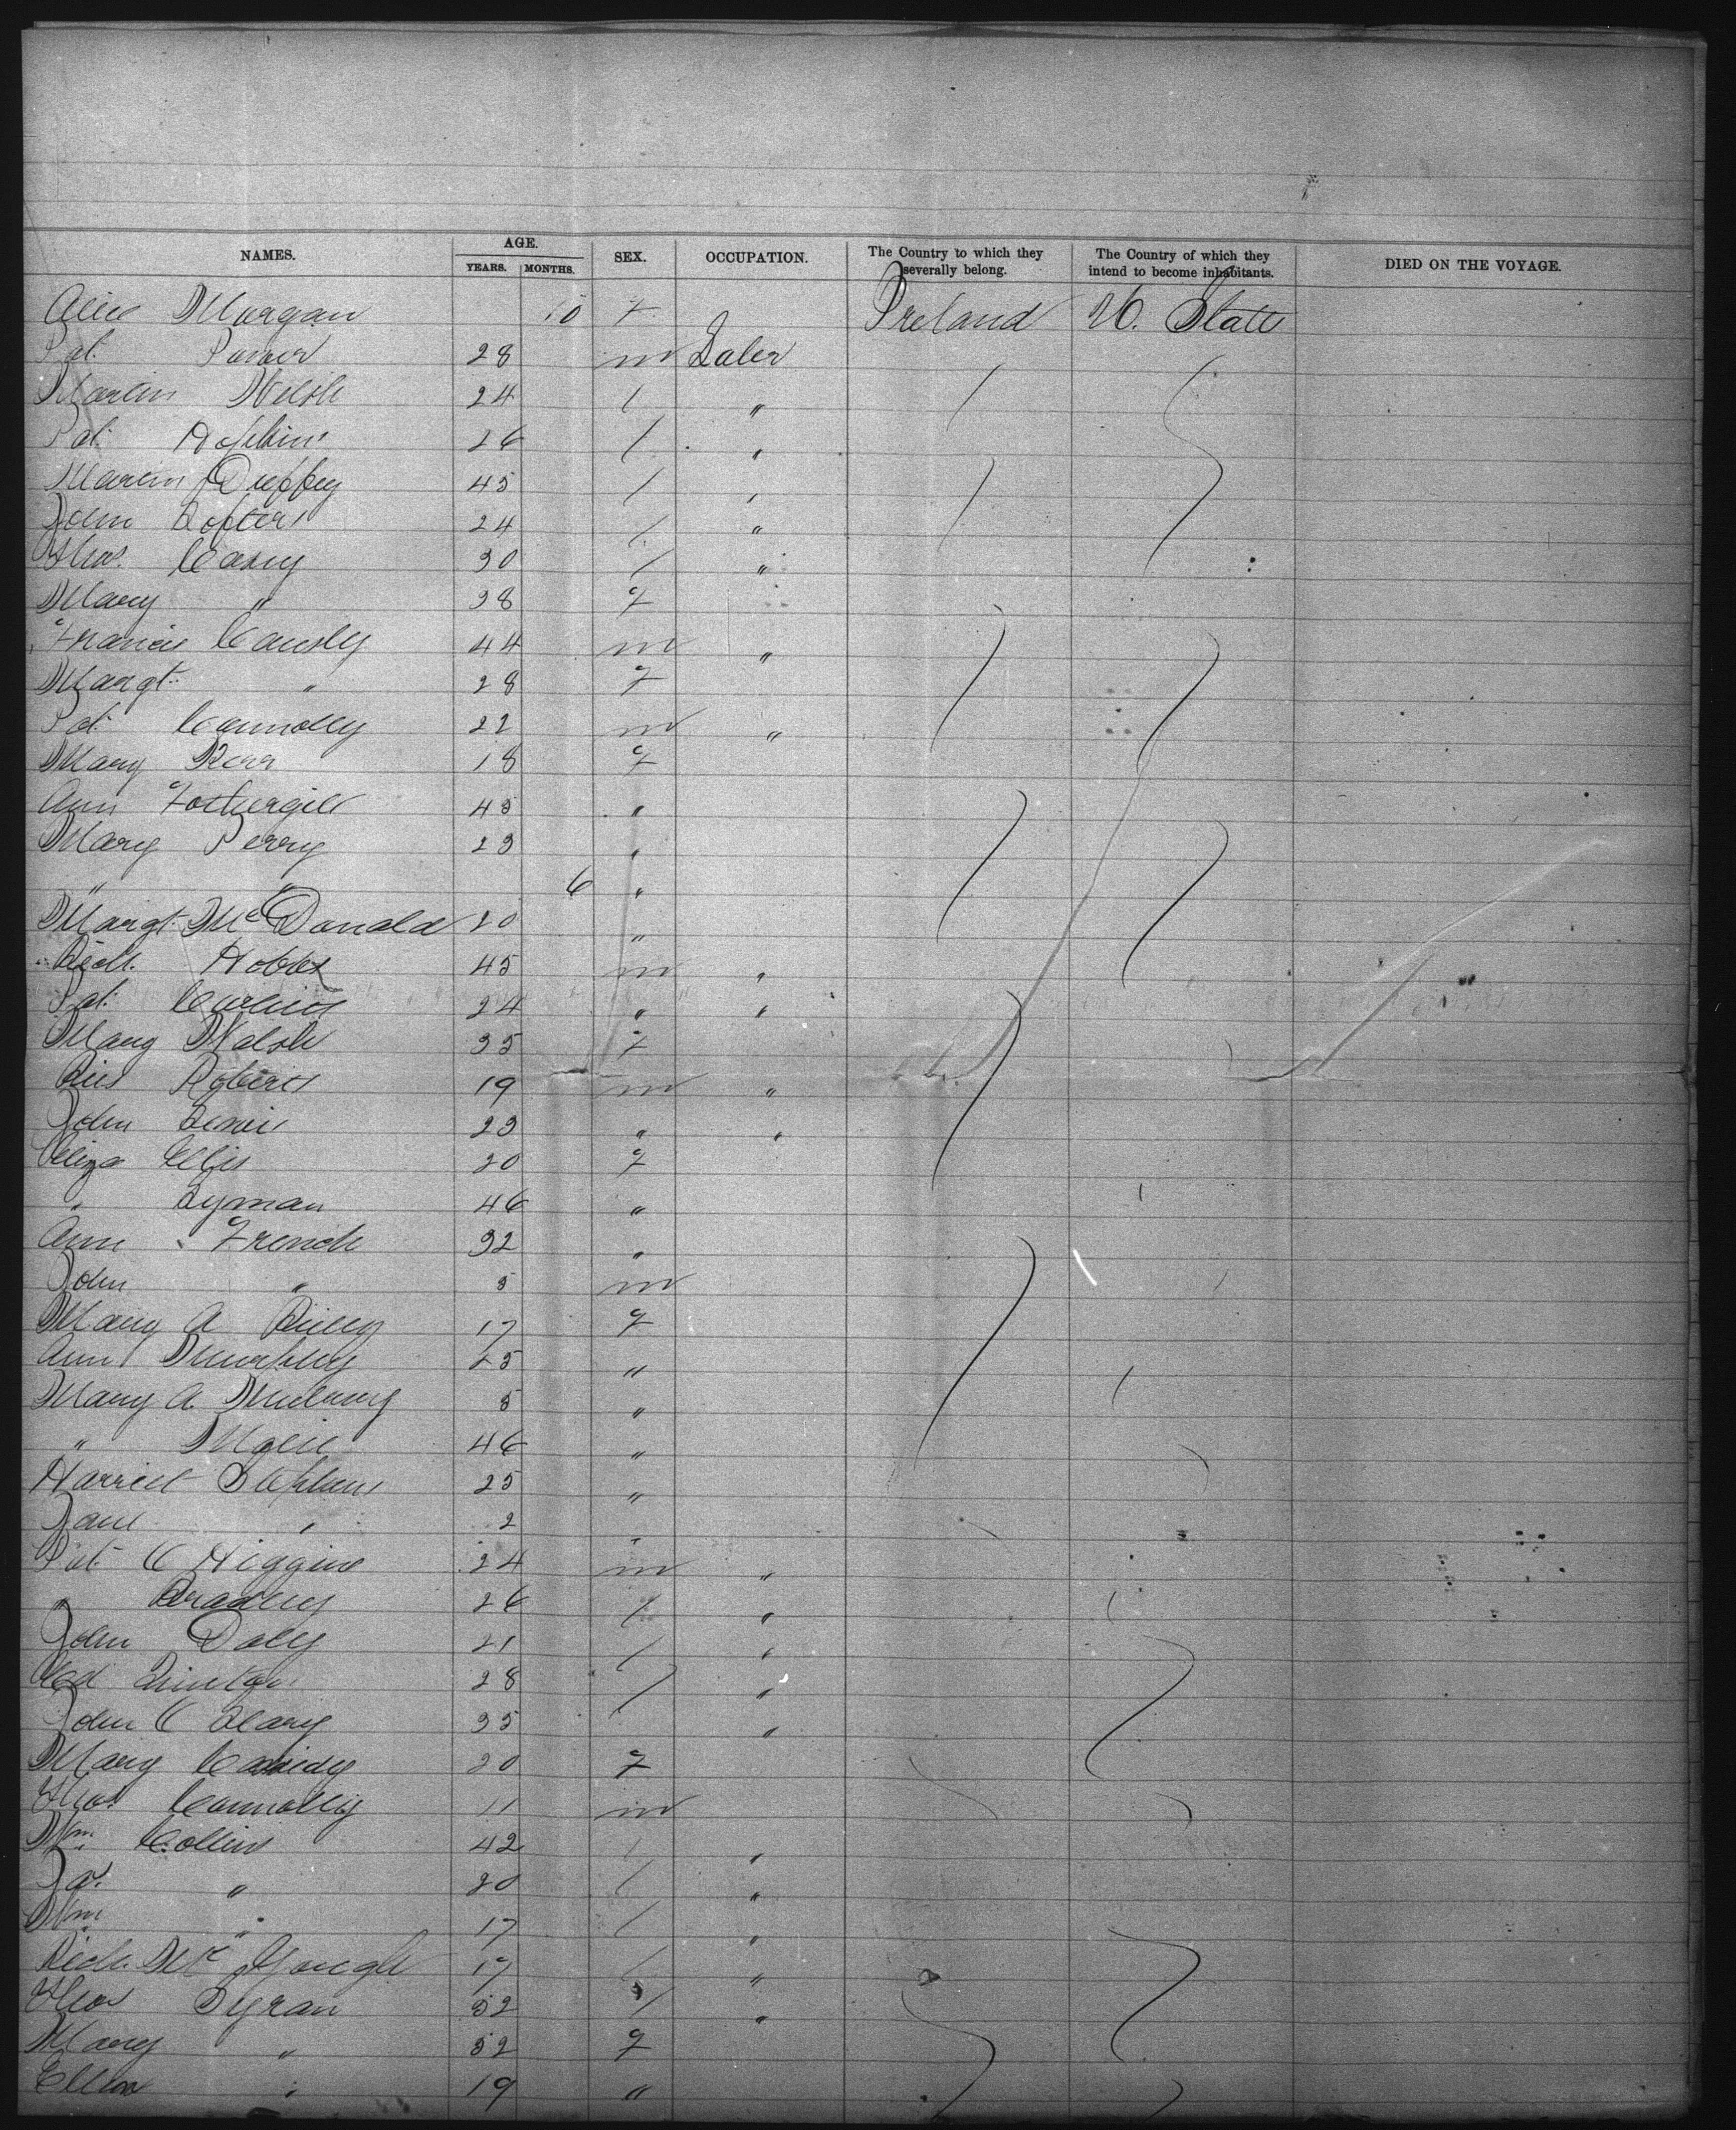 NAMES. AGE. YEARS. MONTHS. SEX. OCCUPATION. The Country to which they severally belong. The Country of which they intend to become inhabitants. DIED ON THE VOYAGE.
Alice Morgan 10 F Ireland U. State
Pat. Power 28 m Laber
Martin Welsh 24 / "
Pat. Hopkins 26 / "
Martin Duffey 45 / "
John 24 / "
Thos. Casey 30 / "
Mary " 38 F
Francis 44 m "
Margt. " 28 F
Pat. Connolly 22 m "
Mary Kerr 18 F
Ann Fothergill 45 "
Mary Perry 23 "
" " 6 "
Margt. McDonald 20 "
Rich. Hobbs 45 m "
Pat. 24 " "
Mary Walsh 35 F
Roberts 19 m "
John Lewis 23 " "
Eliza Ellis 20 F
" Lyman 46 "
Ann French 32 "
John " 5 m
Mary A Reilly 17 F
Ann Murphy 25 "
Mary A. 5 "
" 46 "
Harriet 25 "
Jane " 2 "
Pat. O Higgins 24 m "
" Bradley 26 / "
John Daly 21 / "
Ed Quinlan 28 / "
John O Leary 35 "
Mary Cassidy 20 F
Thos. Connolly 11 m
Wm. Collins 42 / "
Jas. " 20 / "
Wm. " 17 / "
Rich. Mc 17 / "
Thos 52 / "
Mary " 52 F
Ellen " 19 "